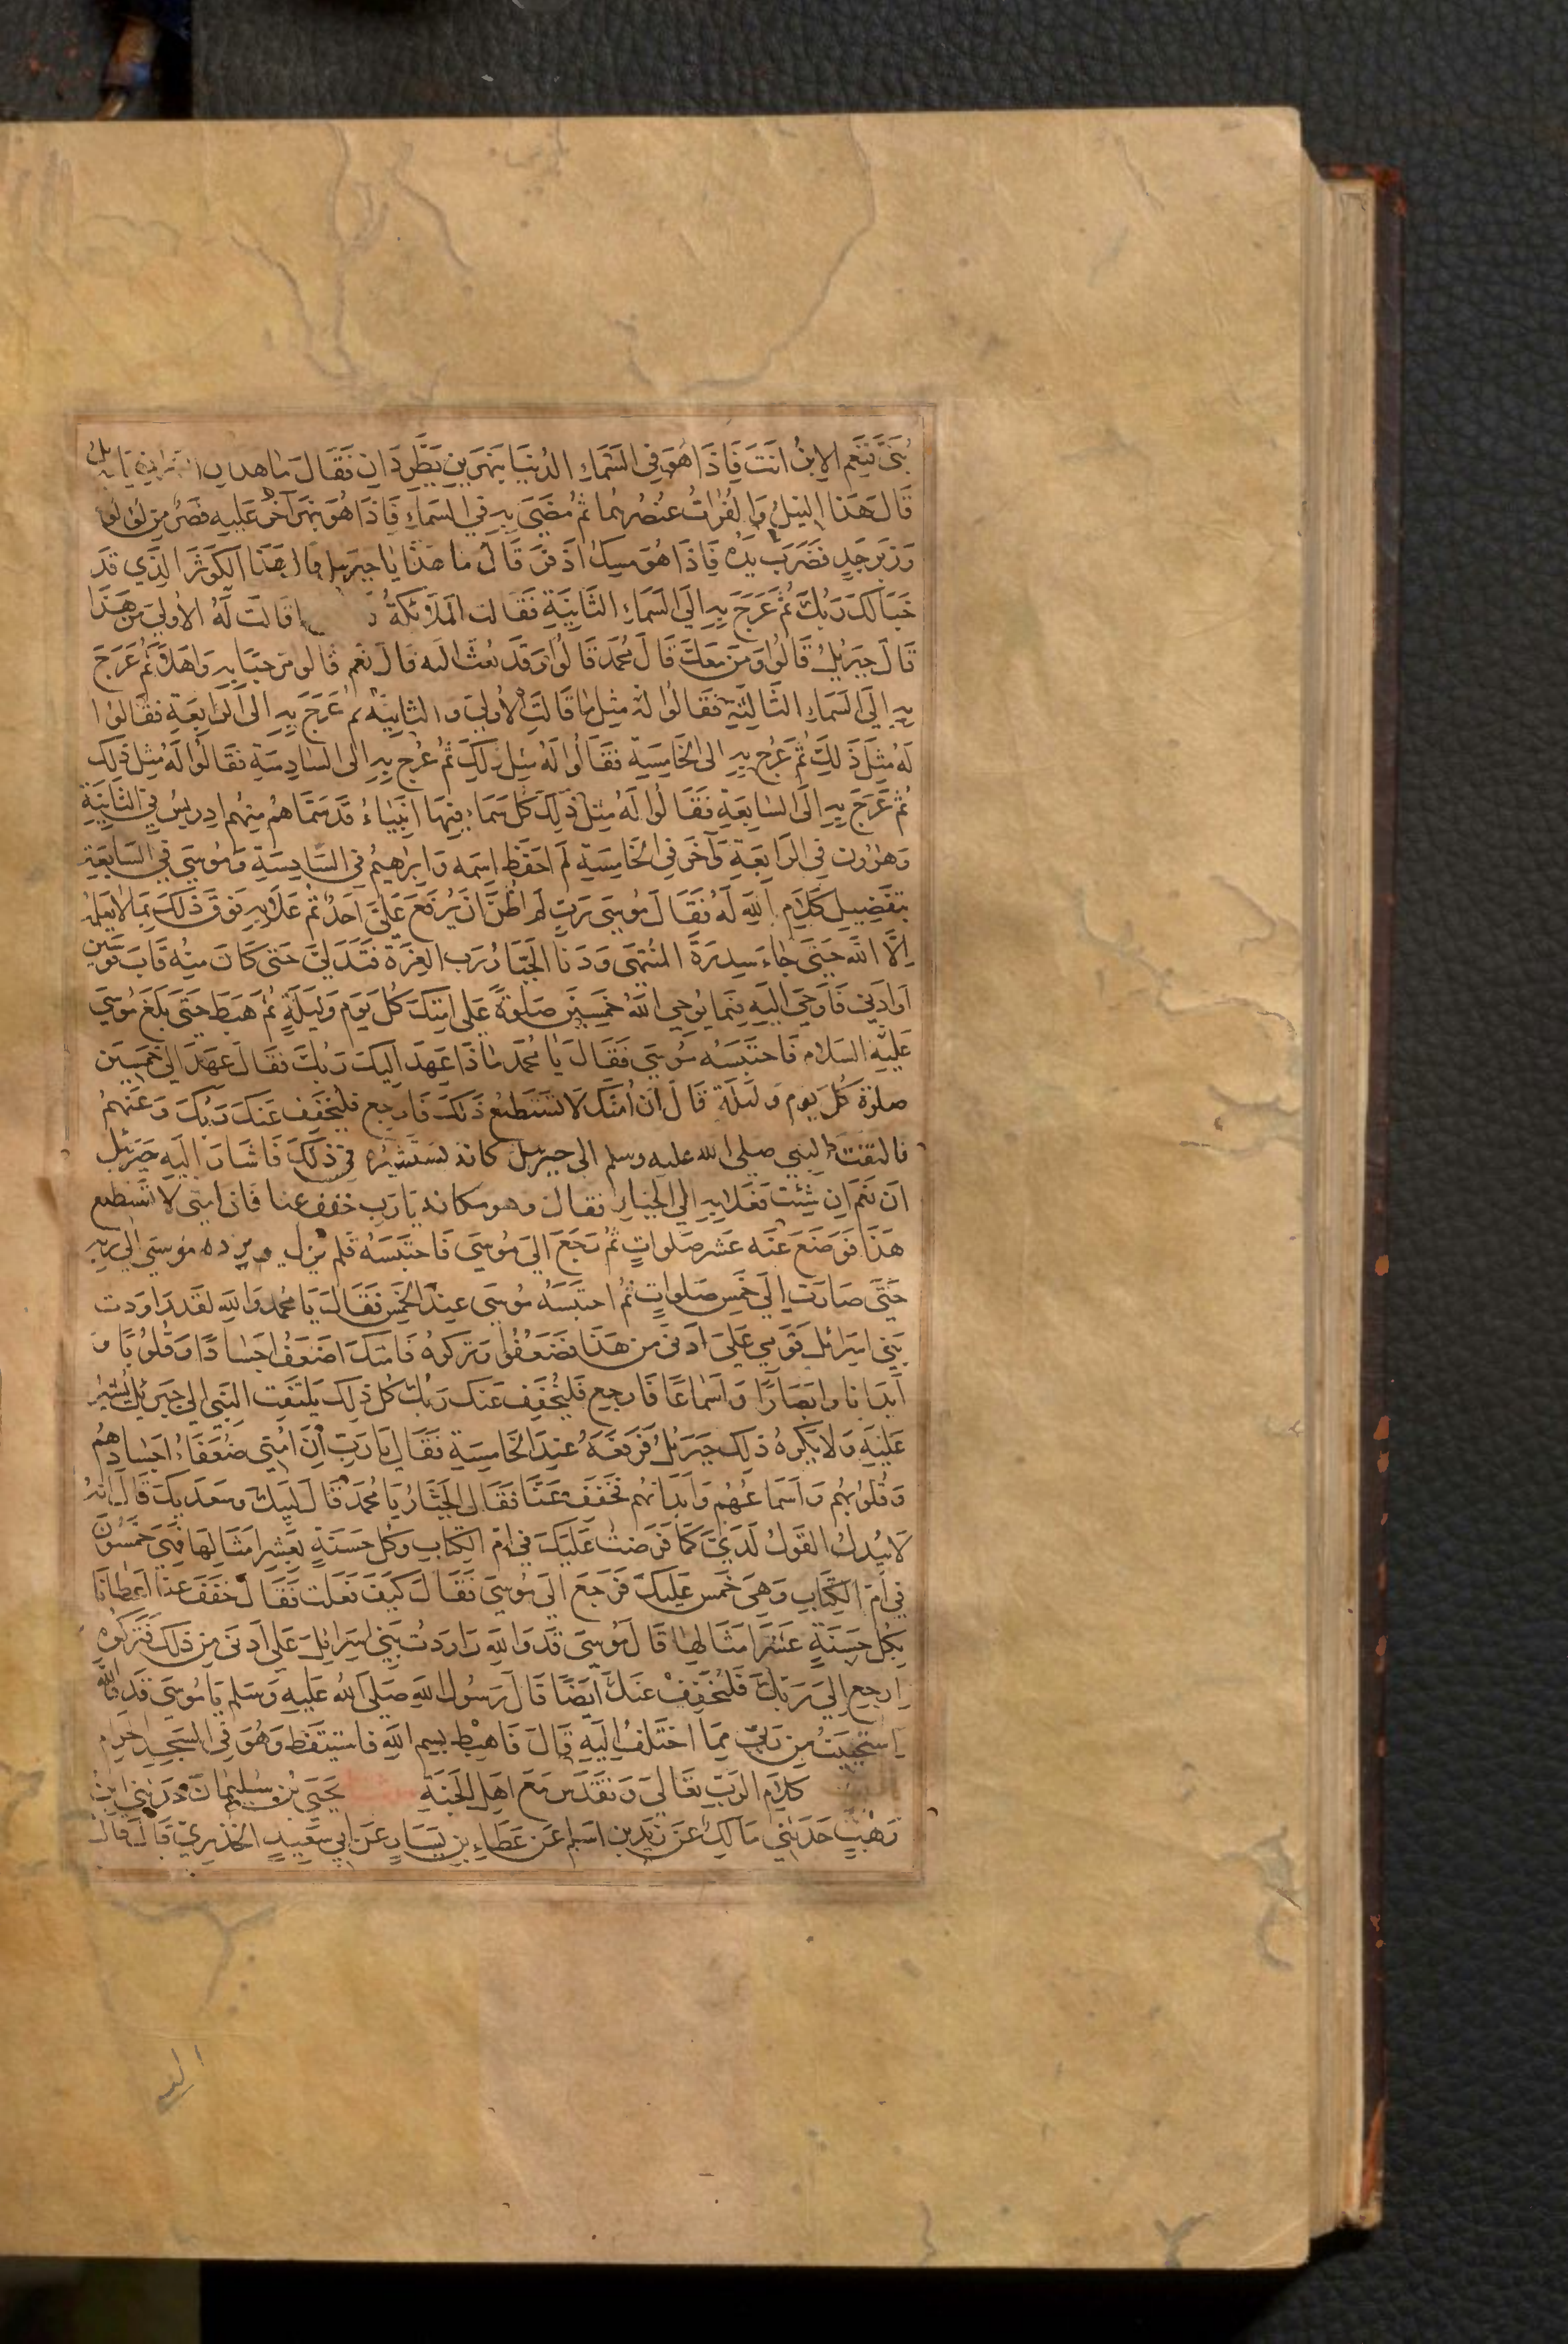 بُنَيَّ نِعْمَ الابنُ انتَ فَاذَا هُوَ فِي السَّمَاءِ الدُّنيَا بِنَهرَينِ يَطَّرِدَانِ فَقَالَ مَا هذان النهران يَا جبريل
قَالَ هَذا النيلُ وَالفُراتُ عُنصُرهُما ثُمَّ مُضِيَ بِهِ فِي السَّمَاءِ فَاذَا هُوَ بِنَهَرٍ آخَرَ عَلَيهِ قَصرٌ مِن لؤلؤ
وَزَبَرجَدٍ فَضَرَبَ يَدَه فَاذَا هُوَ مِسكٌ اذفَرَ قَالَ مَا هَذا يا جبريل قال هَذَا الكَوثَرُ الَّذِي قَد
خَبَا لَكَ رَبُّكَ ثُمَّ عَرَجَ بِهِ الَى السَّمَاءِ الثَّانِيَةِ فَقَالَت المَلائِكَةُ قَالَت لَهُ الأولى مَن هَذَا
قَالَ جِبرِيلُ قَالُوا وَمَن مَعَكَ قَالَ مُحَمَّد قَالُوا وَقَد بُعِثَ اليه قَالَ نَعَم قَالُوا مَرحَبًا بِهِ وَاهلًا ثُمَّ عَرَجَ
بِهِ إلَى السَّمَاءِ الثَّالِثَةِ فَقَالُوا لَهُ مِثلَ مَا قَالَتِ الأولى والثانِيَة ثم عَرَجَ بِهِ الَى الرَّابِعَةِ فَقَالُوا
لَهُ مِثلَ ذَلِكَ ثُمَّ عَرَجَ بِهِ الى الخَامِسَةِ فَقَالُوا لَهُ مِثلَ ذَلِكَ ثُمَّ عُرِجَ بِهِ الَى السَّادِسَةِ فَقَالُوا لَهُ مِثلَ ذلِكَ
ثُمَّ عَرَجَ بِهِ الَى السَّابِعَةِ فَقَالُوا لَهُ مِثلَ ذَلِكَ كُلُّ سَمَاءٍ فِيهَا انبِيَاءُ قَد سَمَّاهُم مِنهُم ادرِيسُ فِي الثَّانِيَةِ
وَهرُون فِي الرَّابِعَةِ وَآخَر فِي الخَامِسَةِ لَم احفَظ اسمَه وَابرٰهِيمُ فِي السَّادِسَةِ وَمُوسَى فِي السَّابِعَةِ
بِتَفضِيلِ كَلَامِ اللهِ لَهُ فَقَالَ مُوسَى رَبِّ لَم اظُنَّ ان يُرفَعَ عَلَيَّ احَدٌ ثُمَّ عَلَا بِهِ فَوقَ ذَلِكَ بِمَا لَا يَعلَمُ
إلَّا الله حَتَّى جَاءَ سِدرَةَ المُنتَهَى وَدَنَا الجَبَّارُ رَبُّ العِزَّةِ فَتَدَلَّى حَتى كَانَ مِنه قَابَ قَوسَين
اوادنى فَاوحَى الَيهِ فِيمَا يُوحِي اللهُ خَمسِينَ صَلوةً عَلى امتِكَ كُلَّ يَومٍ وَلَيلَةٍ ثُمَّ هَبَطَ حَتَّى بَلَغَ مُوسَى
عَلَيهِ السَلَام فَاحتَبَسَه مُوسَى فَقَالَ يَا مُحَمَّد مَاذَا عَهِدَ الَيكَ رَبُّكَ فَقَالَ عَهِدَ الَيَّ خَمسِينَ
صلوٰةً كُلَّ يَومٍ وَلَيلَةٍ قَالَ ان اُمَّتَكَ لَا تَستَطِيعُ ذَلكَ فَارجِع فليُخَفِّف عَنكَ رَبُّكَ وَعَنهُم
فالتفتَ النبي صلى الله عليه وسلم الى جبريل كانه يَستَشِيرُه فِي ذَلِكَ فَاشَارَ الَيهِ جِبرئِيل
ان نَعَم ان شِئتَ فَعَلَا بِهِ الى الجَبَّارِ فَقَالَ وهو مكانه يَا رَبِّ خفف عنا فَان امتى لا تَستَطيع
هَذَا فَوَضَعَ عَنه عَشرَ صَلواتٍ ثُمَّ رَجَعَ الَى مُوسَى فَاحتَبَسَهُ فلم يزل يردده مُوسَى الى رَبِّهِ
حَتَّى صَارَت الَى خَمسِ صَلَواتٍ ثُمَّ احتَبَسَهُ مُوسَى عِندَ الخَمسِ فَقَالَ يَا مُحَمَّد وَاللهِ لَقَد رَاوَدت
بَنِي اسرائلَ قَومِي عَلَى ادنى مِن هَذَا فَضَعُفُوا وَتَركوهُ فَامتكَ اضعَفُ اجسَادًا وَقُلُوبًا وَ
ابدَانا وابصَارًا وَاسمَاعًا فَارجِع فَليُخَفِّف عَنكَ رَبُّكَ كُلّ ذلِكَ يَلتَفِت النَّبِي الى جِبرِيلَ ليشير
عَلَيهِ وَلا يَكرَهُ ذلِكَ جِبرِيلُ فَرَفعَهُ عِندَ الخَامِسَةِ فَقَالَ يَا رَبِّ انَّ امَّتِي ضُعَفَاءُ اجسادهُم
وَقُلُوبُهُم وَاسمَاعُهُم وَابدَانُهُم فَخَفِّف عَنَّا فَقَالَ الجَبَّارُ يَا مُحَمَّد قَالَ لَبَّيكَ وَسَعدَيكَ قَالَ انه
لَا يُبدلُ القَولُ لَدَيَّ كَمَا فَرَضتُ عَلَيكَ فِي امِّ الكِتَابِ وكُلُّ حَسَنَةٍ بِعَشرِ امثَالِهَا فَهِيَ خَمسُونَ
فِي امِّ الكِتَابِ وَهِيَ خَمس عَلَيكَ فَرَجَعَ الَى مُوسَى فَقَالَ كَيفَ فَعَلتَ فَقَالَ خَفَّفَ عَنَّا اعطَانَا
بِكُلِّ حَسَنَةٍ عَشرَ امثَالِهَا قَالَ مُوسَى قَد وَاللهِ رَاوَدتُ بَنِي اسرَائلَ عَلى ادنى مِن ذلِكَ فَتَركُوه
ارجِع إلَى رَبِّكَ فَليُخَفِّف عَنكَ ايضًا قَالَ رَسُولُ اللهِ صَلى اللهُ عَلَيهِ وَسَلم يَا مُوسَى قَد وَاللهِ
استَحيَيتُ مِن رَبِّي مِمَّا اختَلَفُ الَيهِ قَالَ فَاهبِط بِسمِ اللهِ فَاستَيقَظ وَهُوَ فِي المسجِدِ الحَرامِ
كَلَام الرَّبِّ تَعَالَى وَتَقَدَّس مَعَ اهلِ الجَنَّةِ يَحيَى بنُ سُلَيمَانَ حَدَّثَنِي ابنُ
وَهبٍ حَدَّثَنِي مَالِك عَن زَيدِ بنِ اسلم عَن عَطَاءِ بنِ يَسَارٍ عَن ابِي سَعِيدٍ الخُدرِيِّ قَالَ قال